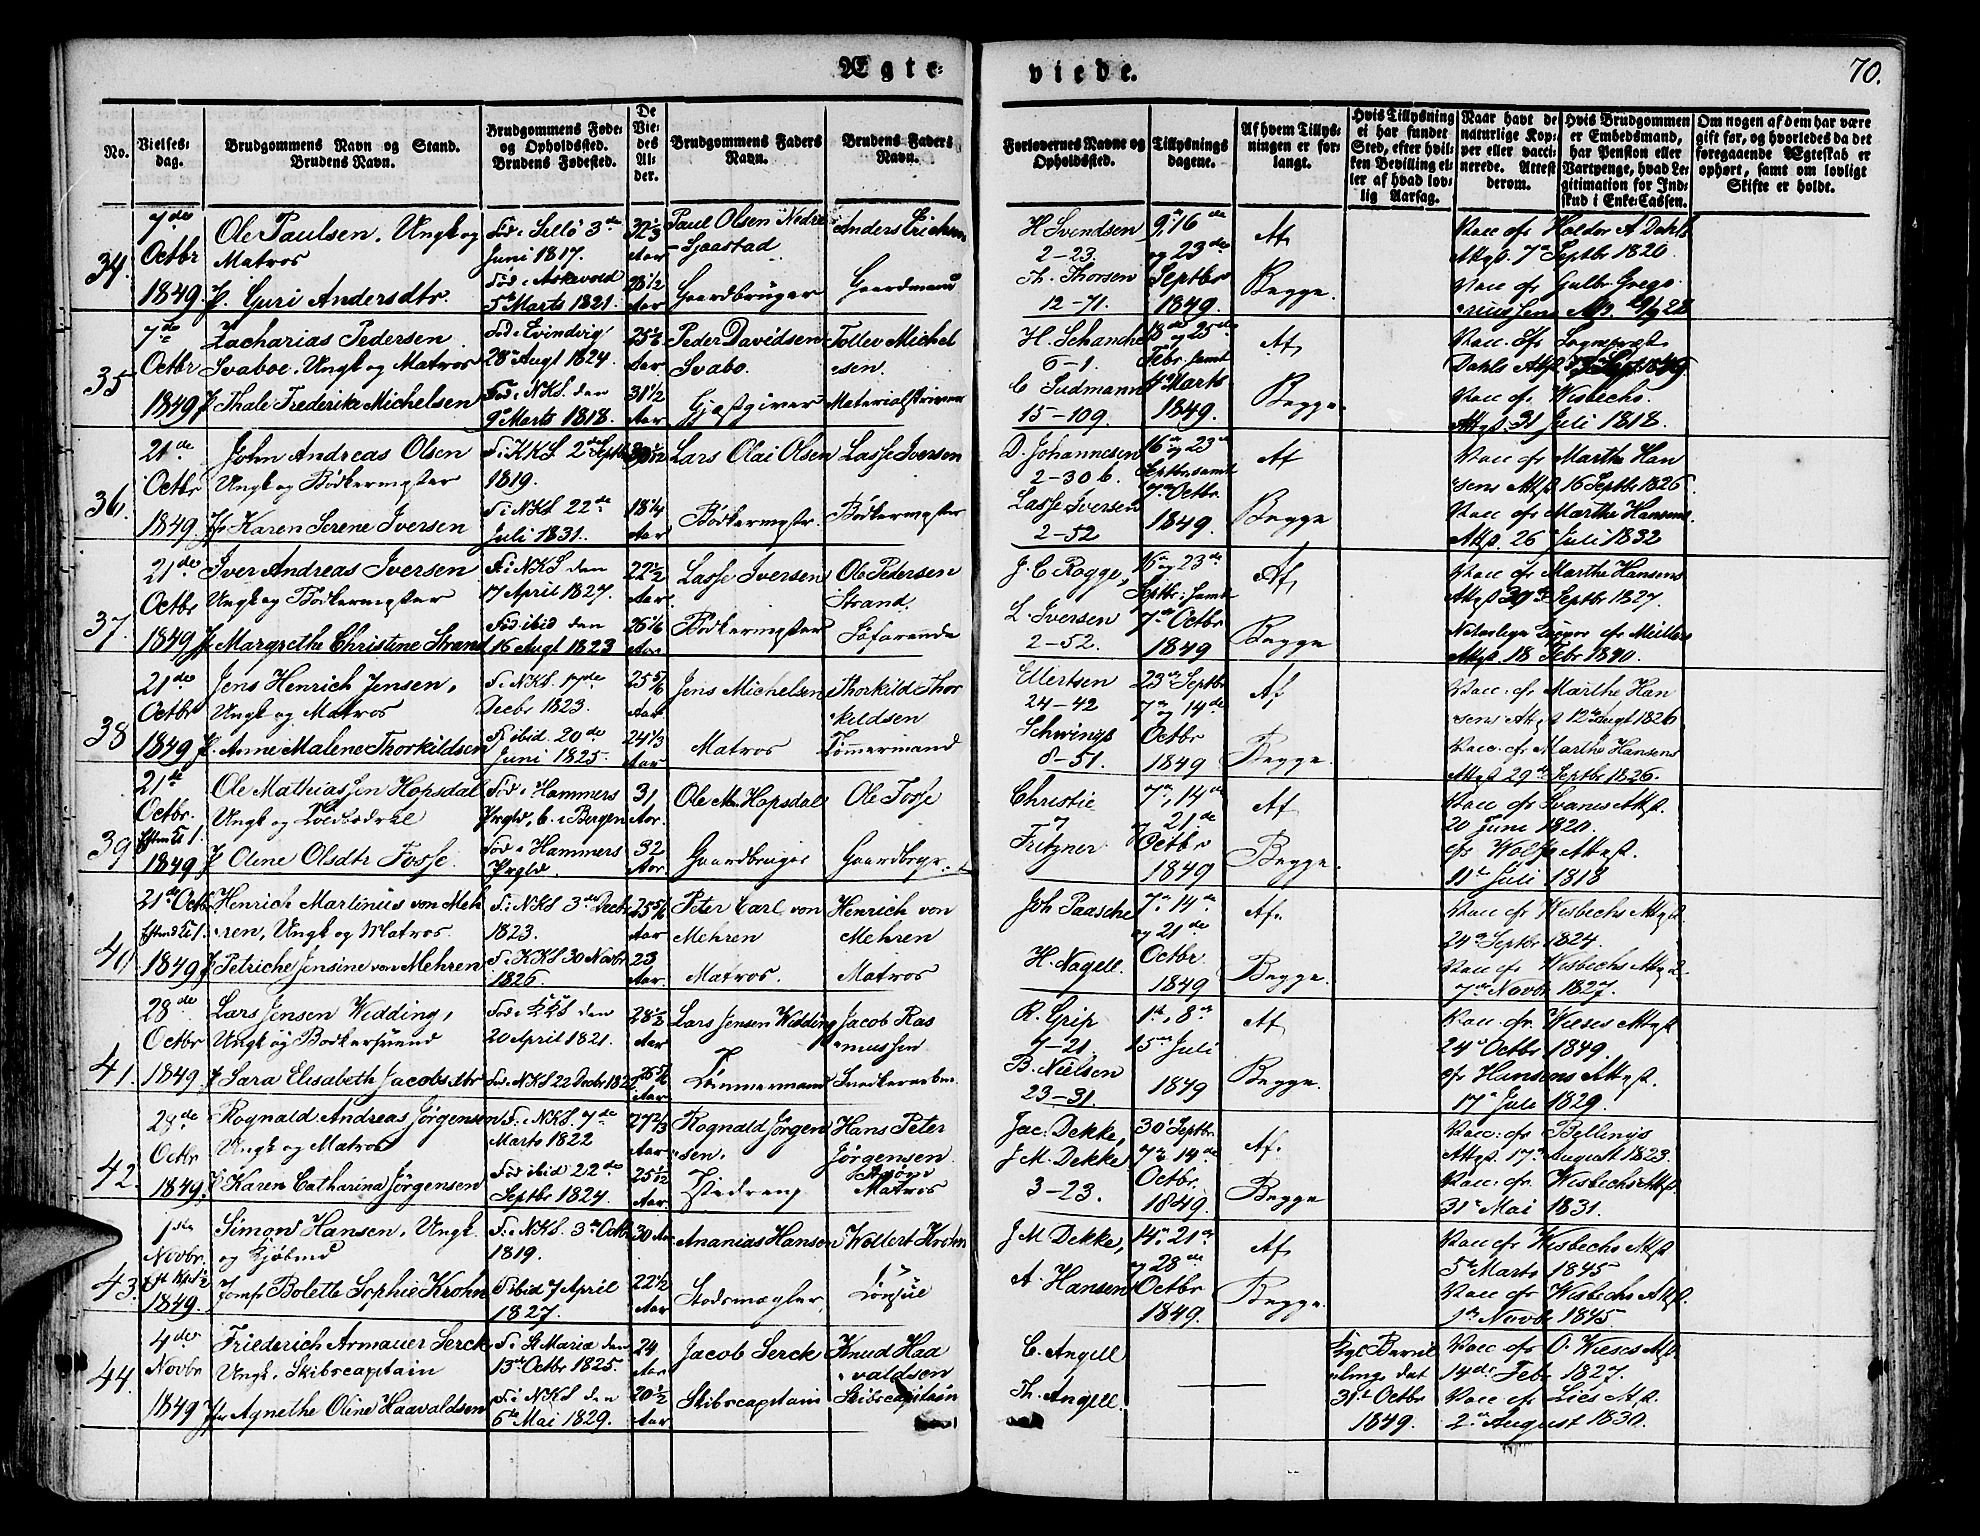 Ægte-
viede.
70.
No.
Vielses-
dag.
Brudgommens Navn og Stand.
Brudens Navn.
Brudgommens Føde-
og Opholdssted.
Brudens Fødested.
De
Vie-
des
Al-
der.
Brudgommens Faders
Navn.
Brudens Faders
Navn.
Forlovernes Navne og
Opholdssted.
Tillysnings
dagene.
Af hvem Tillys-
ningen er for-
langt.
Hvis Tillysning
ei har fundet
Sted, efter hvil-
ken Bevilling el-
ler af hvad lov-
lig Aarsag.
Naar havt de
naturlige Kop-
per eller vacci-
nerede. Attest
derom.
Hvis Brudgommen
er Embedsmand,
har Pension eller
Vartpenge, hvad Le-
gitimation for Ind-
skud i Enke-Cassen.
Om nogen af dem har være
gift før, og hvorledes da det
foregaaende Ægteskab er
ophørt, samt om lovligt
Skifte er holdt.
34.
7de
Octbr
1849.
Ole Paulsen, Ungk og
Matros
P. Guri Andersdtr.
Juni 1817.
Fød i Askevold
5te Marts 1821.
32 1/3
Aar
28 1/2
Aar
Paul Olsen Nedre
Sjaastad
Gaardbruger
Anders
Gaardmand
H. Svendsen
2-23.
Th. Thorsen
12-71.
9, 16de
og 23de
Septbr
1849.
Af
Begge.
Vacc. af Holdor A Dahls
Attest 7de Septbr 1820
Vacc af Gulbr Grego-
riussens
35
7de
Octbr
1849
Zacharias Pedersen
Svaboe, Ungk og Matros
P. Thale Frederike Michelsen
Fød i Evindvig
28 Augt 1824.
Fød i NKS. den
9de Marts 1818.
Aar
31 1/2
Aar
Peder Davidsen
Svabo.
Gjæstgiver
Tollev Michel
sen.
Materialskriver
H. Schanche
6-1.
C Sudmann
15-109.
18de og 25de
Febr. samt
4de Marts
1849.
Af
Begge.
Vacc. af Sogneprest
Dahls Attest
Vacc. af Wisbechs
Attest. 31 Juli 1818.
36.
21de
Octbr
1849
John Andreas Olsen
Ungk og Bødkermester
Jfr Karen Serene Iversen
F. i KKS 2de Septbr
1819.
F. i NKS 22de
Juli 1831.
Aar
18 1/4
Aar
Lars Olai Olsen
Bødkermester
Lasse Iversen
Bødkermester
D. Johannesen
2-30 b.
Lasse Iversen
2-52
16de og 23de
Septbr samt
7de Octbr
1849.
Af
Begge
Vacc af Marthe Han
sens Attest 16 Septbr 1826
Vacc af Marthe Hansens
Attest. 26 Juli 1832
37.
21de
Octbr
1849
Iver Andreas Iversen
Ungk og Bødkermester
P. Margrethe Christine Strand
F. i NKS den
17 April 1827.
Fød ibid den
16 Augt 1823
22 1/2
Aar
26 1/6
Aar
Lasse Iversen
Bødkermester
Ole Pedersen
Strand.
Søfarende
J. C. Rogge,
L. Iversen
2-52.
16 og 23de
Septbr: samt
7de Octbr
1849
Af
Begge
Vacc af Marthe Hansens
Septbr 1827.
Naturlige Kopper af Müllers
Attest 18 Febr 1840.
38
21de
Octbr
1849
Jens Henrich Jensen,
Ungk og Matros
P. Anne Malene Thorkildsen
F. i NKS. 17de
Decbr 1823.
F. ibid. 20de
Juni 1825.
25 5/6
Aar
24 1/3
Aar
Jens Michelsen
Matros
Thorkild Thor
kildsen
Tømmermand
Ellertsen
24-42
Schwings
8-51.
23de Septbr
7de og 14de
Octbr
1849
Af
Begge.
Vacc. af Marthe Han
sens Attest 12te Augt 1826
Vacc. af Marthe Hansens
Attest 29de Septbr 1826.
39
21de
Octbr.
Eftmd Kl 1.
1849
Ole Mathiassen Hopsdal
Ungk og
P Oline Olsdtr Fosse.
Fød i Hammers
Prgld, b. i Bergen
Fød i Hammers
Prgld.
31
Aar
32
Aar
Ole M. Hopsdal
Gaardbruger
Ole Fosse
Gaardbrgr.
Christie
Fritzner
7de, 14de
og 21de
Octbr
1849
Af
Begge.
Vacc af Svanes Attest.
20 Juni 1820.
af Wolfs Attest.
11te Juli 1818
40
21de Octbr
Eftmd Kl 1.
1849
Henrich Martinus von Meh
ren, Ungk og Matros.
P Petriche Jensine von Mehren
F. i NKS 3de Decbr
1823.
F. i KKS 30 Novbr
1826.
25 5/6
Aar
23
Aar
Peter Carl von
Mehren
Matros.
Henrich von
Mehren
Matros
Joh Paasche
H. Nagell.
7de 14de
og 21de
Octbr
1849
Af.
Begge.
Vacc af Wisbechs Attest
24de Septbr 1824.
Vacc af Wisbechs Attest
7de Novbr 1827.
41.
28de
Octbr
1849
Lars Jensen Widding,
Ungk og Bødkersvend
P Sara Elisabeth Jacobsdtr
Fød i KKS den
20 April 1821.
Fød i NKS 22 Decbr
28 1/2
Aar
26 5/6
Aar
Lars Jensen Widding
Tømmermand
Jacob Ras
mussen
R. Grip
7-21.
B. Nielsen
23-31.
1ste, 8de
15de Juli
1849
Af
Begge.
Vacc. af. Wieses Attest
24de Octbr 1849.
af Hansens Attest.
17de Juli 1829.
42.
28de
Octbr
1849.
Rognald Andreas Jørgensen
Ungk og Matros
P Karen Catharina Jørgensen
F. i NKS 7de
Marts 1822
Fød ibid 22de
Septbr 1824.
27 2/3
Aar
25 1/12
Aar
Rognald Jørgen
sen.
Hans Peter
Jørgensen
Matros
Jac: Dekke,
J M. Dekke
3-23.
30 Septbr.
7de 14de
Octbr.
1849.
Af.
Begge
Vacc: af Bellings
Attest. 17de August 1823.
Vacc. af Wisbechs Attest
31te Mai 1831.
43.
1ste
Novbr.
1849.
Simon Hansen, Ungk.
og Kjøbmd
Jomfr Bolette Sophie Krohn
F. i NKS. 3de Octbr
1819.
F. ibid 7 April
1827.
30 Aar
22 1/2
Aar
Ananias Hansen
Stadsmægler,
Wollert Krohn
Consul
J M Dekke,
A. Hansen
14de 21de
og 28de
Octbr
1849.
Af
Begge.
Vacc af Wisbechs Attest
5te Marts 1845
Vacc af Wisbechs Attest.
1ste Novbr 1845.
44.
4de
Novbr
1849
Friederich Armauer Serck
Ungk. Skibscaptain
Jfr Agnethe Oline Haavaldsen
F. i St Mariæ den
13de Octbr 1825.
F. i NKS den
6te Mai 1829.
24
Aar
20 1/2
Aar
Jacob Serck
Skibscaptain
Knud Haa
valdsen
Skibscaptain
C. Angell
Th. Angell.
Kgl Bevil
ling dat
31te Octbr
1849.
Vacc af O. Wieses Attest
14de Febr 1827.
Vacc af Lies Attest.
2de August 1830.